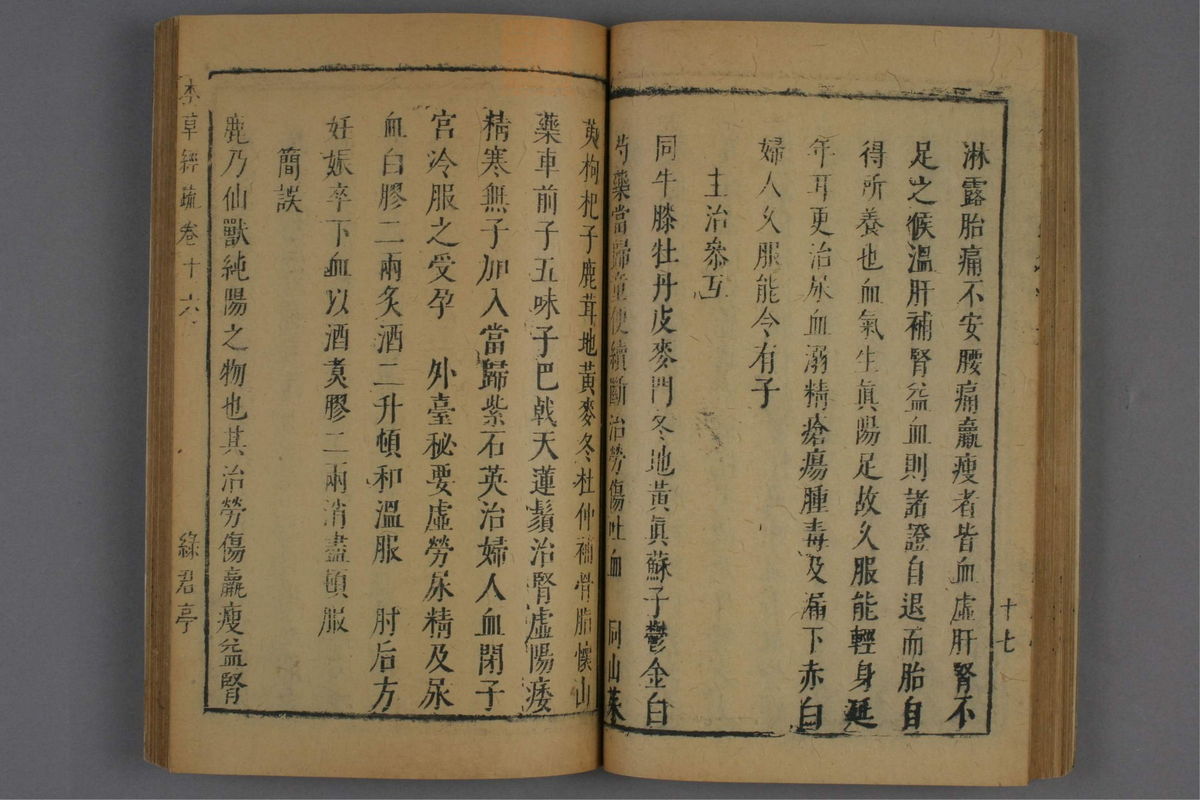 淋露胎痛不安腰痛羸瘦者皆血虛肝腎不
足之候溫肝補腎益血則諸證自退而胎自
得所養也血氣生眞陽足故久服能輕身延
年耳更治尿血溺精瘡瘍腫毒及漏下赤白
婦人久服能令有子
主治參互
同牛膝牡丹皮麥門冬地黃眞蘇子鬱金白
芍藥當歸童便續斷治勞傷吐血 同山茱
十七
萸枸杞子鹿茸地黃麥冬杜仲補骨脂懷山
藥車前子五味子巴戟天蓮鬚治腎虛陽痿
精寒無子加入當歸紫石英治婦人血閉子
宮冷服之受孕 外臺秘要虛勞尿精及尿
血白膠二兩炙酒二升頓和溫服 肘后方
妊娠卒下血以酒煑膠二兩消盡頓服
簡誤
鹿乃仙獸純陽之物也其治勞傷羸瘦益腎
本草經疏卷十六 綠君亭